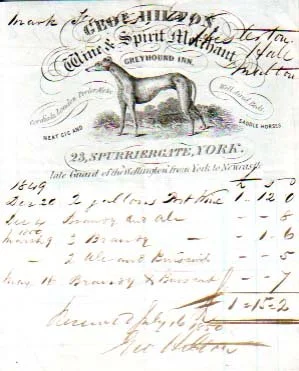 Mark
GEO. HILTON,
Wine & Spirit Merchant
Hall
Malton
GREYHOUND INN.
Cordials, London Porter, Ales
Well Aired Beds
NEAT GIG AND
SADDLE HORSES
23, SPURRIERGATE, YORK.
late Guard of the Wellington from York to Newcastle
1849
Dec 20 2 gallons Port Wine 1 - 12 0
Dec Brandy and Ale - - 8
1850
March 9 2 Brandy - 1 - 6
2 Ale and - - 5
Brandy & - - 7
£ 1 = 15 = 2
July 16 1850
Geo Hilton